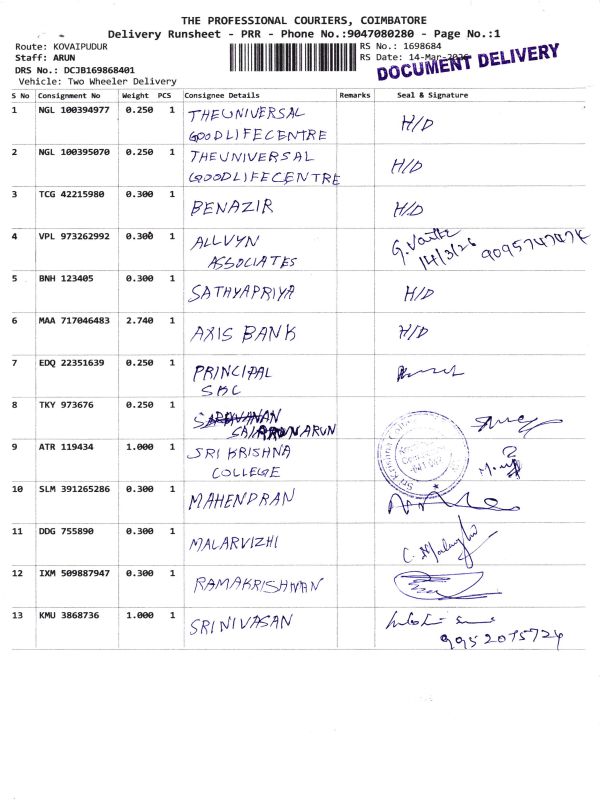 THE PROFESSIONAL COURIERS, COIMBATORE
Delivery Runsheet - PRR - Phone No.:9047080280 - Page No.:1
Route: KOVAIPUDUR RS No.: 1698684
Staff: ARUN RS Date: 14-Mar-2026
DRS No.: DCJB169868401 DOCUMENT DELIVERY
Vehicle: Two Wheeler Delivery
S No Consignment No Weight PCS Consignee Details Remarks Seal & Signature
1 NGL 100394977 0.250 1 THEUNIVERSAL
GOODLIFECENTRE H/D
2 NGL 100395070 0.250 1 THEUNIVERSAL
GOODLIFECENTRE H/D
3 TCG 42215980 0.300 1 BENAZIR H/D
4 VPL 973262992 0.300 1 ALLVYN
ASSOCIATES 14/3/26 9095747474
5 BNH 123405 0.300 1 SATHYAPRIYA H/D
6 MAA 717046483 2.740 1 AXIS BANK H/D
7 EDQ 22351639 0.250 1 PRINCIPAL
SBC
8 TKY 973676 0.250 1 SARAVANAN
ARUN
9 ATR 119434 1.000 1 SRI KRISHNA
COLLEGE
10 SLM 391265286 0.300 1 MAHENDRAN
11 DDG 755890 0.300 1 MALARVIZHI
12 IXM 509887947 0.300 1 RAMAKRISHNAN
13 KMU 3868736 1.000 1 SRINIVASAN
9952075724